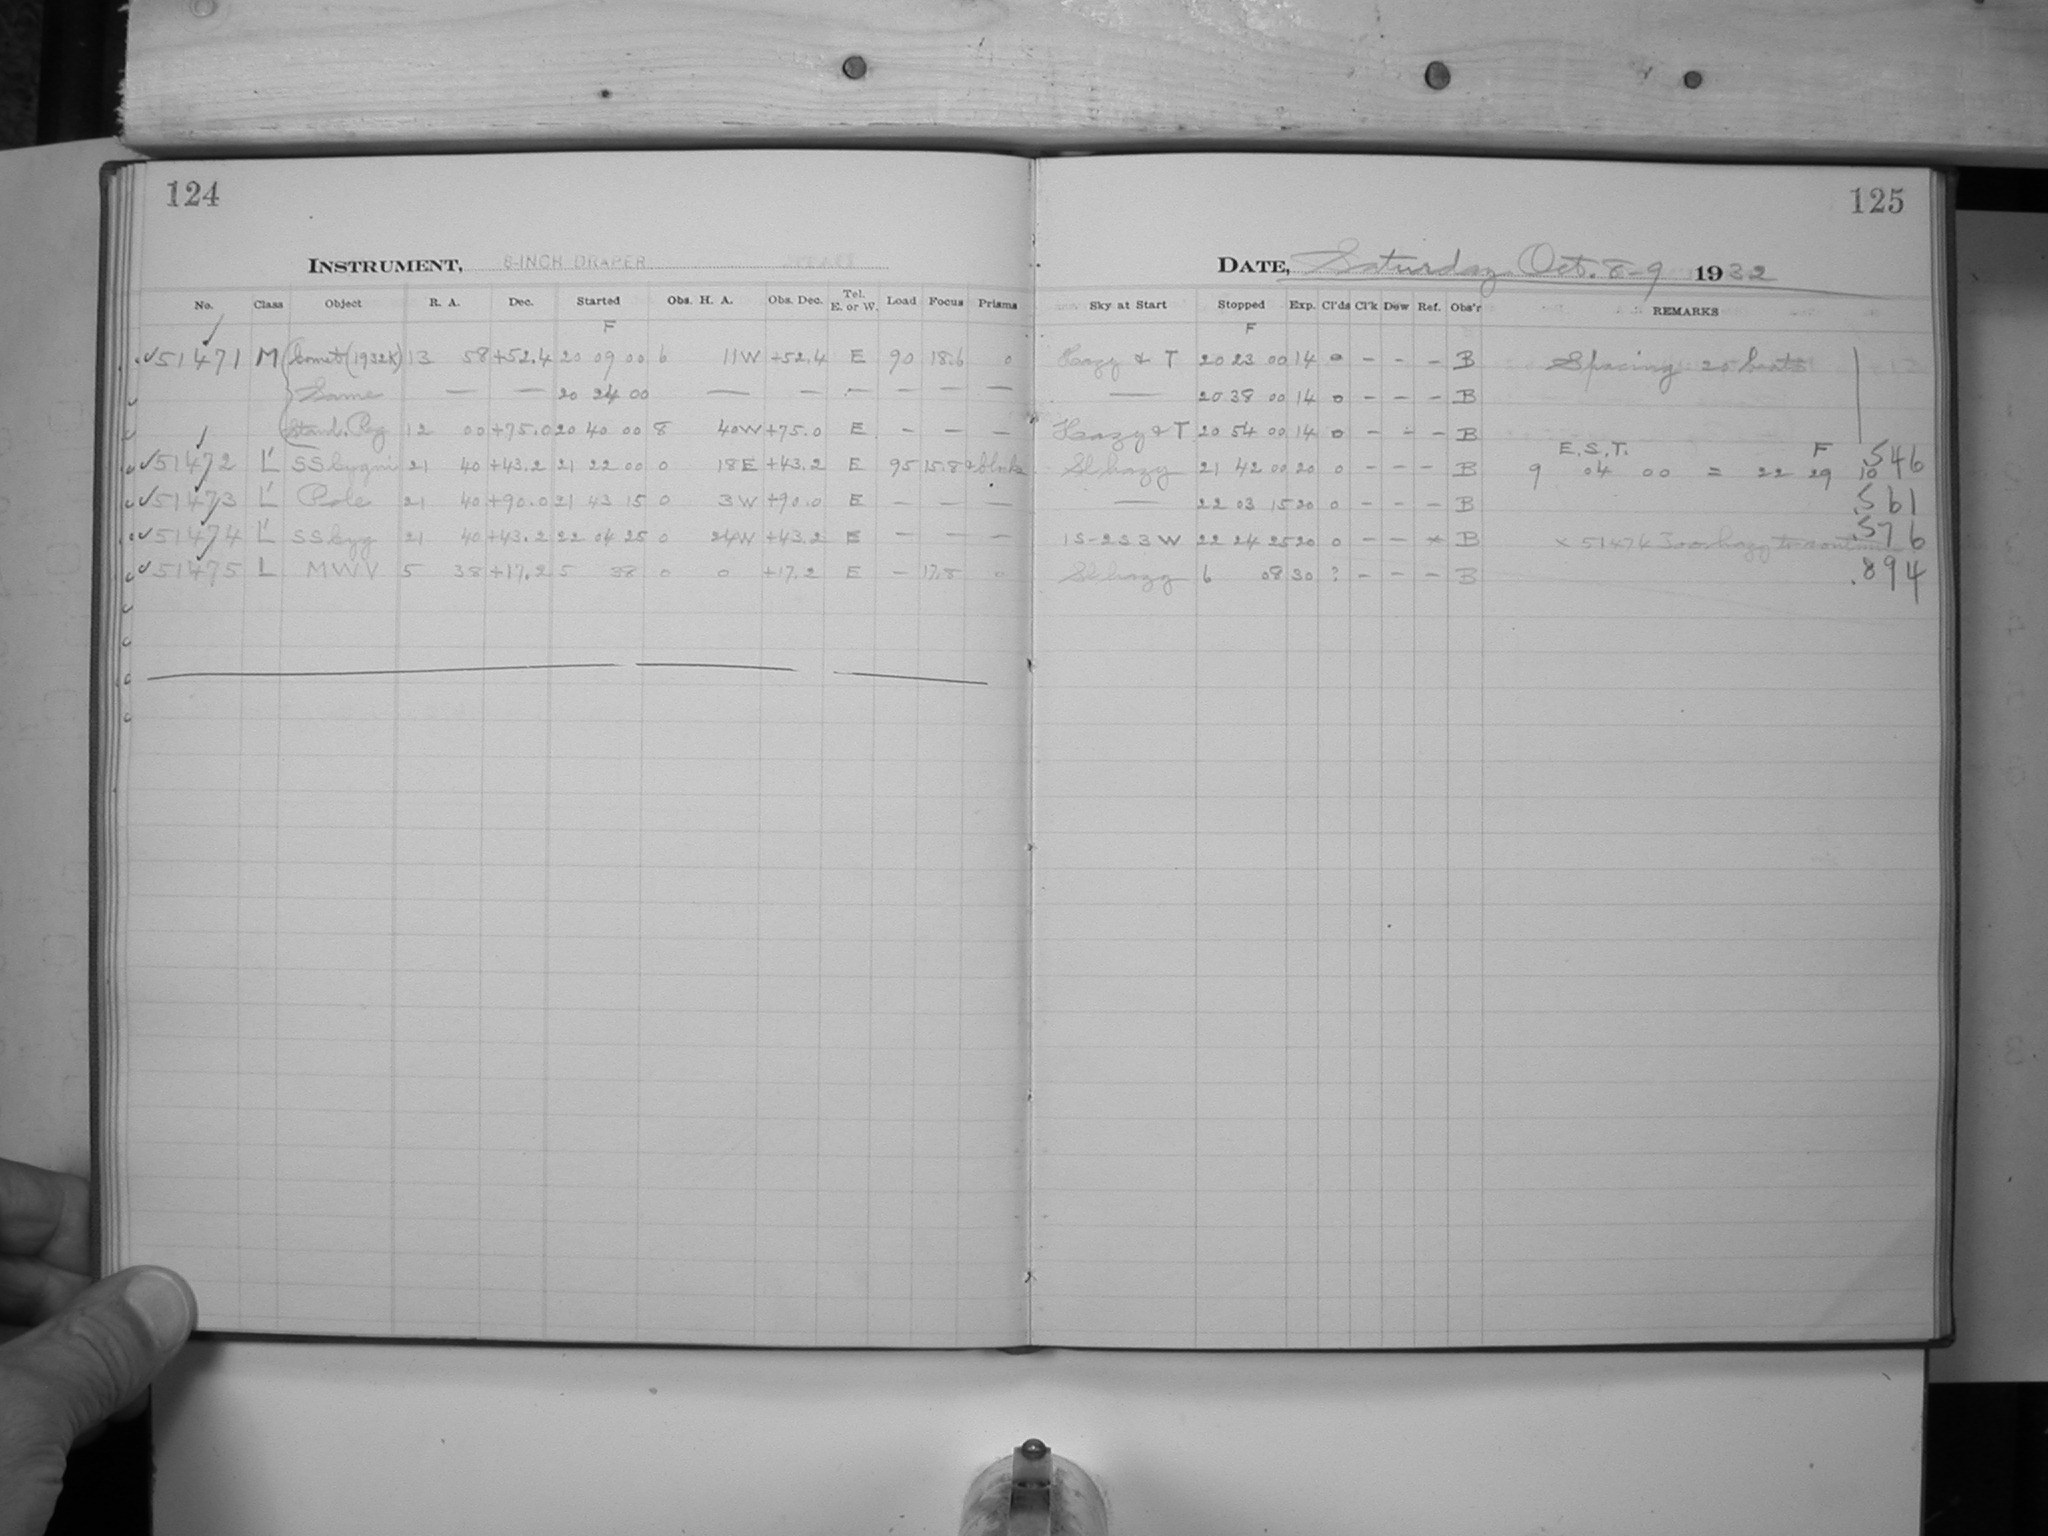 124
INSTRUMENT, 8-INCH DRAPER
No. Class Object R. A. Dec. Started Obs. H. A. Obs. Dec. Tel. E. or W. Load Focus Prisms
F
51471 M Comet (1932K) 13 58 +52.4 20 09 00 6 11W +52.4 E 90 18.6 0
Same — — 20 24 00 — — — — — —
Stand. Reg 12 00 +75.0 20 40 00 8 40W +75.0 E — — —
51472 L' SS Cygni 21 40 +43.2 21 22 00 0 18E +43.2 E 95 15.8
51473 L' Pole 21 40 +90.0 21 43 15 0 3W +90.0 E — — —
51474 L' SS Cyg 21 40 +43.2 22 04 25 0 24W +43.2 E — — —
51475 L MWV 5 38 +17.2 5 38 0 0 +17.2 E — 17.8 0
125
DATE, Saturday Oct. 8-9 1932
Sky at Start Stopped Exp. Cl'ds Cl'k Dew Ref. Obs'r REMARKS
F
Hazy & T 20 23 00 14 0 — — — B Spacing 20 beats
— 20 38 00 14 0 — — — B
Hazy & T 20 54 00 14 0 — — — B
E.S.T. F
Sl hazy 21 42 00 20 0 — — — B 9 04 00 = 22 29 10 .546
— 22 03 15 20 0 — — — B .561
1S-2S3W 22 24 25 20 0 — — × B × 51474 Too hazy to continue .576
Sl hazy 6 08 30 ? — — — B .894